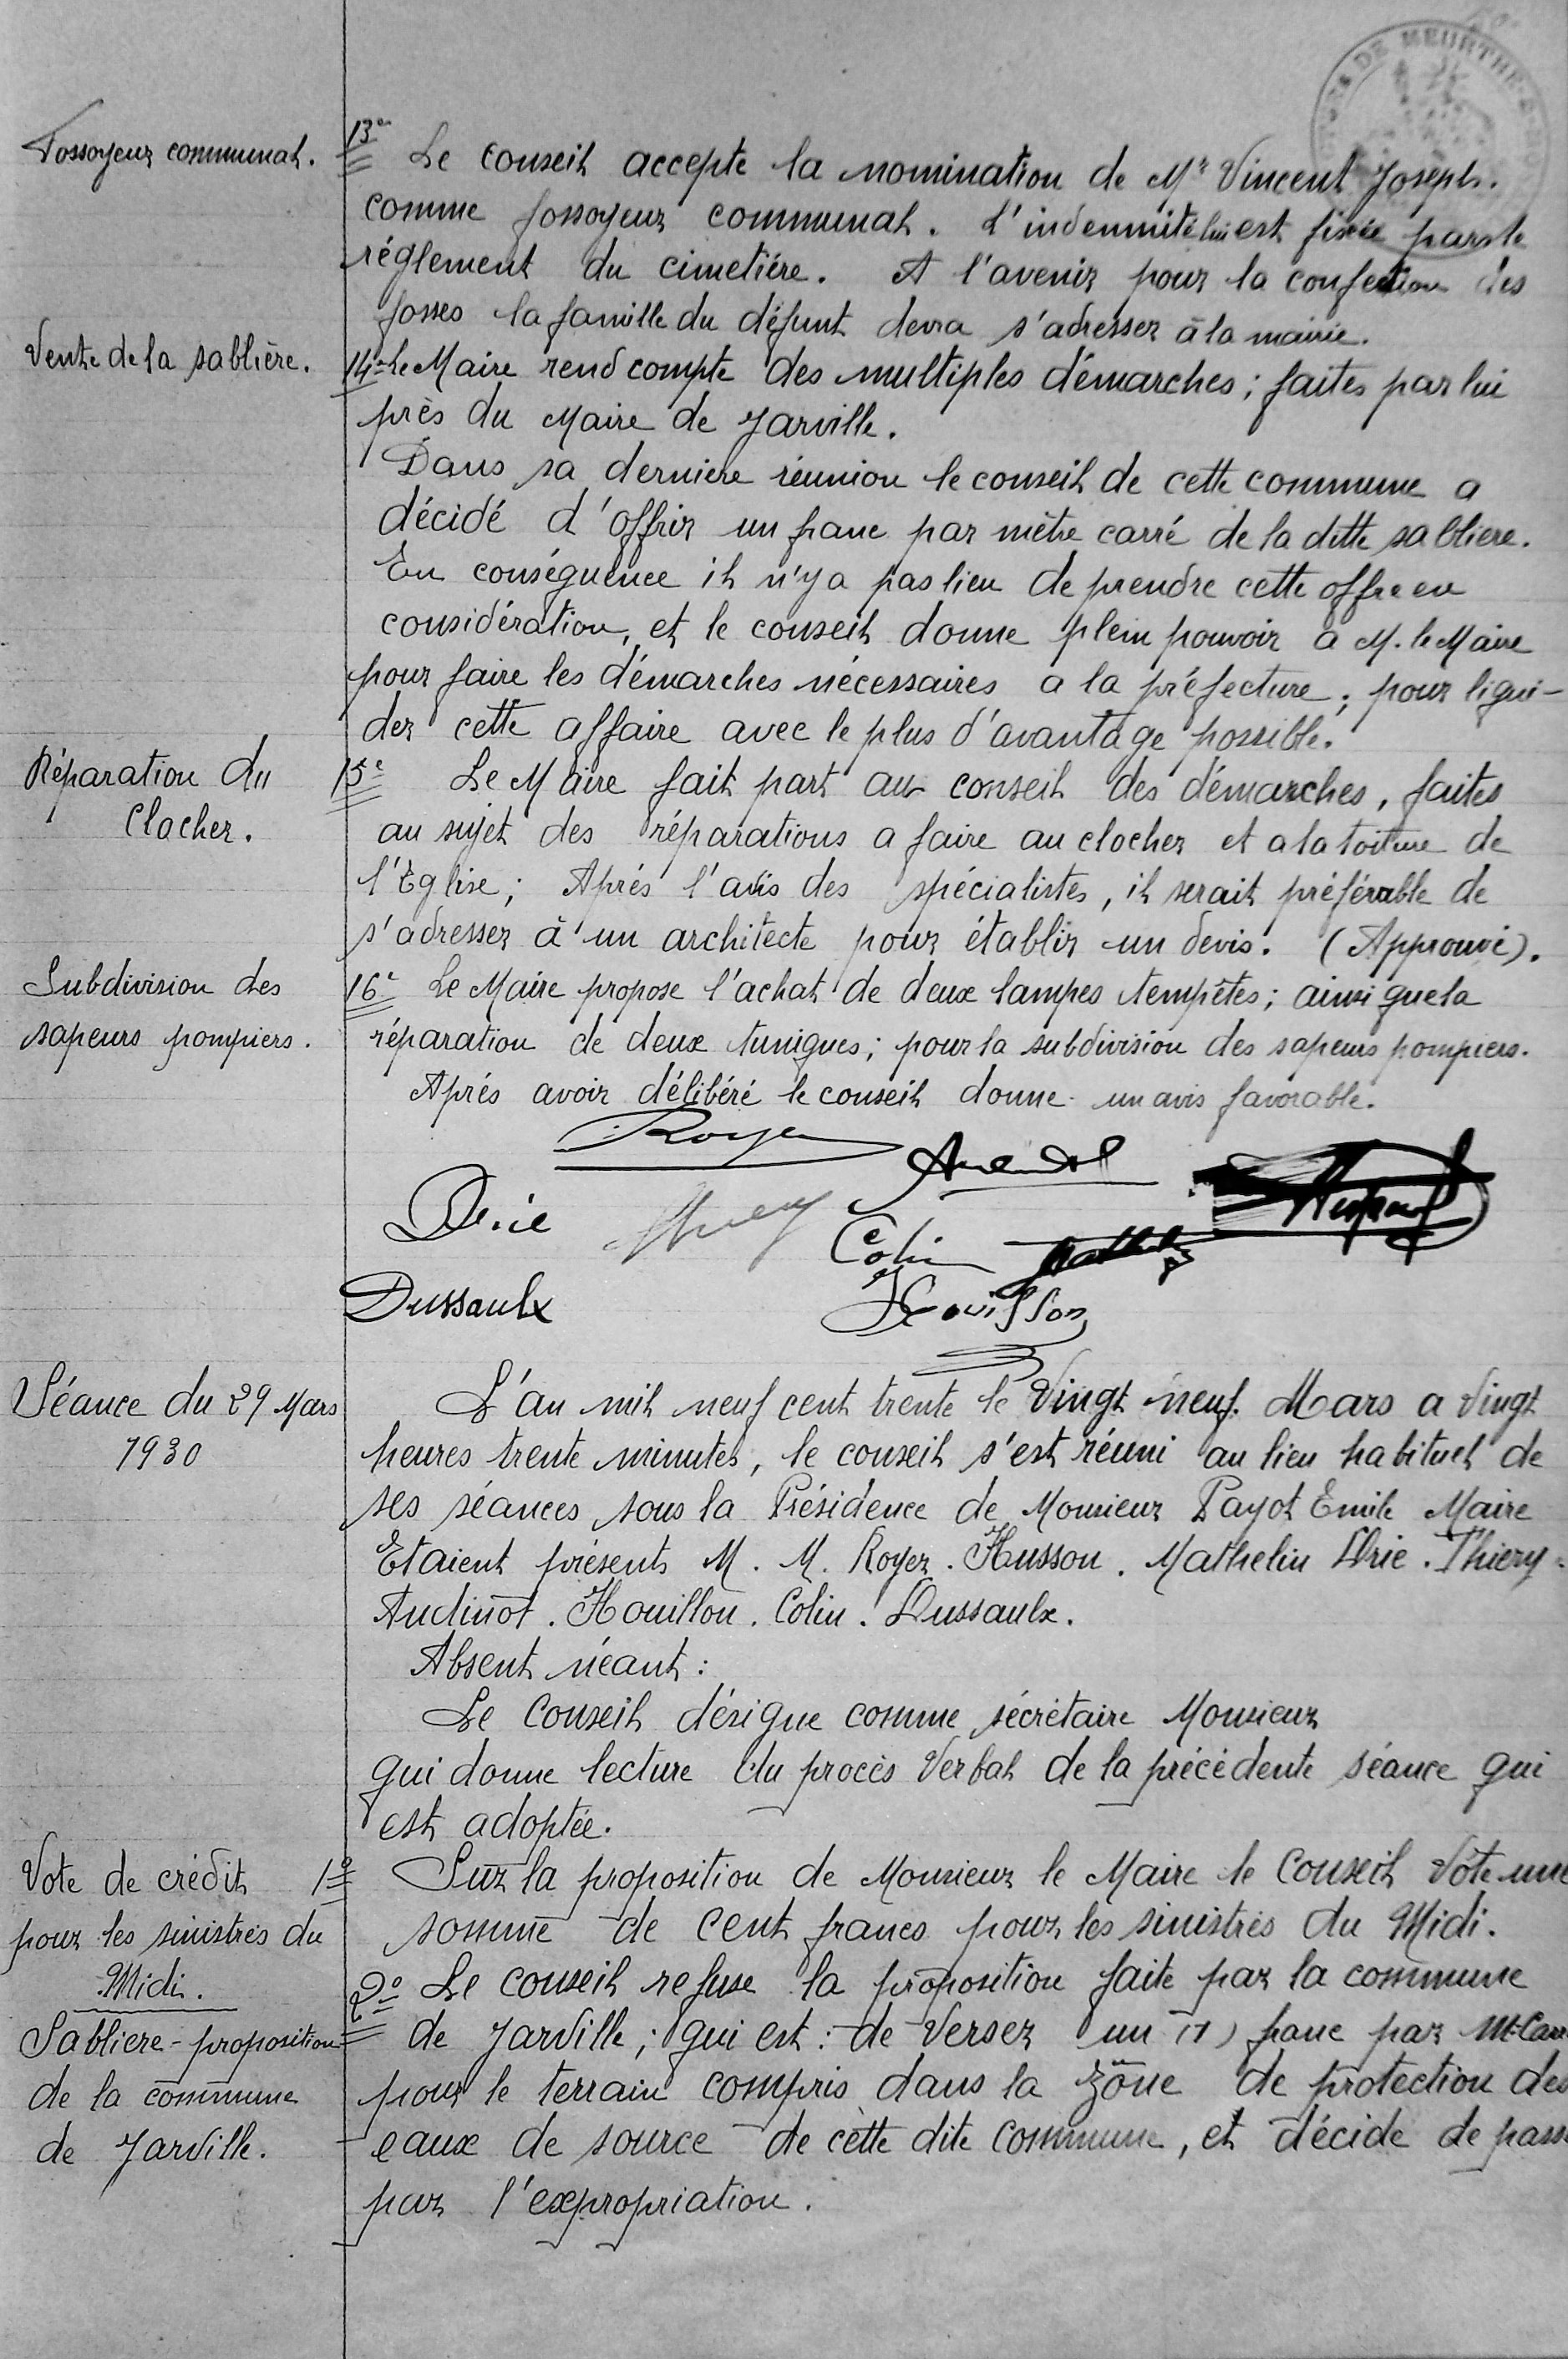 DE MEURTHE-&-
Fossoyeur communal.
13e Le conseil accepte la nomination de Mr Vincent Joseph.
comme fossoyeur communal. L'indemnité lui est fixée par le
réglement du cimetière. A l'avenir pour la confection des
fosses la famille du défunt devra s'adresser à la mairie.
Vente de la sablière.
14e Le Maire rend compte des multiples démarches; faites par lui
près du Maire de Jarville.
Dans sa derniere réunion le conseil de cette commune a
décidé d'offrir un franc par mètre carré de la ditte sabliere.
En conséquence il n'y a pas lieu de prendre cette offre en
considération, et le conseil donne plein pouvoir a M. le Maire
pour faire les démarches nécessaires a la préfecture; pour liqui-
der cette affaire avec le plus d'avantage possible.
Réparation du
Clocher.
15e Le Maire fait part au conseil des démarches, faites
au sujet des réparations a faire au clocher et a la toiture de
l'Eglise; Aprés l'avis des spécialistes, il serait préférable de
s'adresser à un architecte pour établir un devis. (Approuvé).
Subdivision des
sapeurs pompiers.
16e Le Maire propose l'achat de deux lampes tempêtes; ainsi que la
réparation de deux tuniques; pour la subdivision des sapeurs pompiers.
Aprés avoir délibéré le conseil donne un avis favorable.
Royer
Drie Colin
Dussaulx Houillon
Séance du 29 Mars
1930
L'an mil neuf cent trente le Vingt neuf Mars a Vingt
heures trente minutes, le conseil s'est réuni au lieu habituel de
ses séances sous la Présidence de Monsieur Payot Emile Maire
Etaient présents M. M. Royer. Husson. Mathelin Drie. Thiery.
Audinot. Houillon. Colin. Dussaulx.
Absent néant:
Le Conseil désigne comme sécrétaire Monsieur
qui donne lecture du procès Verbal de la précédente séance qui
est adoptée.
Vote de crédit
pour les sinistrés du
Midi.
1e Sur la proposition de Monsieur le Maire le Conseil Vote une
somme de cent francs pour les sinistrés du Midi.
Sabliere - proposition
de la commune
de Jarville.
2e Le conseil refuse la proposition faite par la commune
de Jarville; qui est: de Verser un (1) franc par M. Car
pour le terrain compris dans la zône de protection des
eaux de source de cette dite Commune, et décide de pass
par l'expropriation.